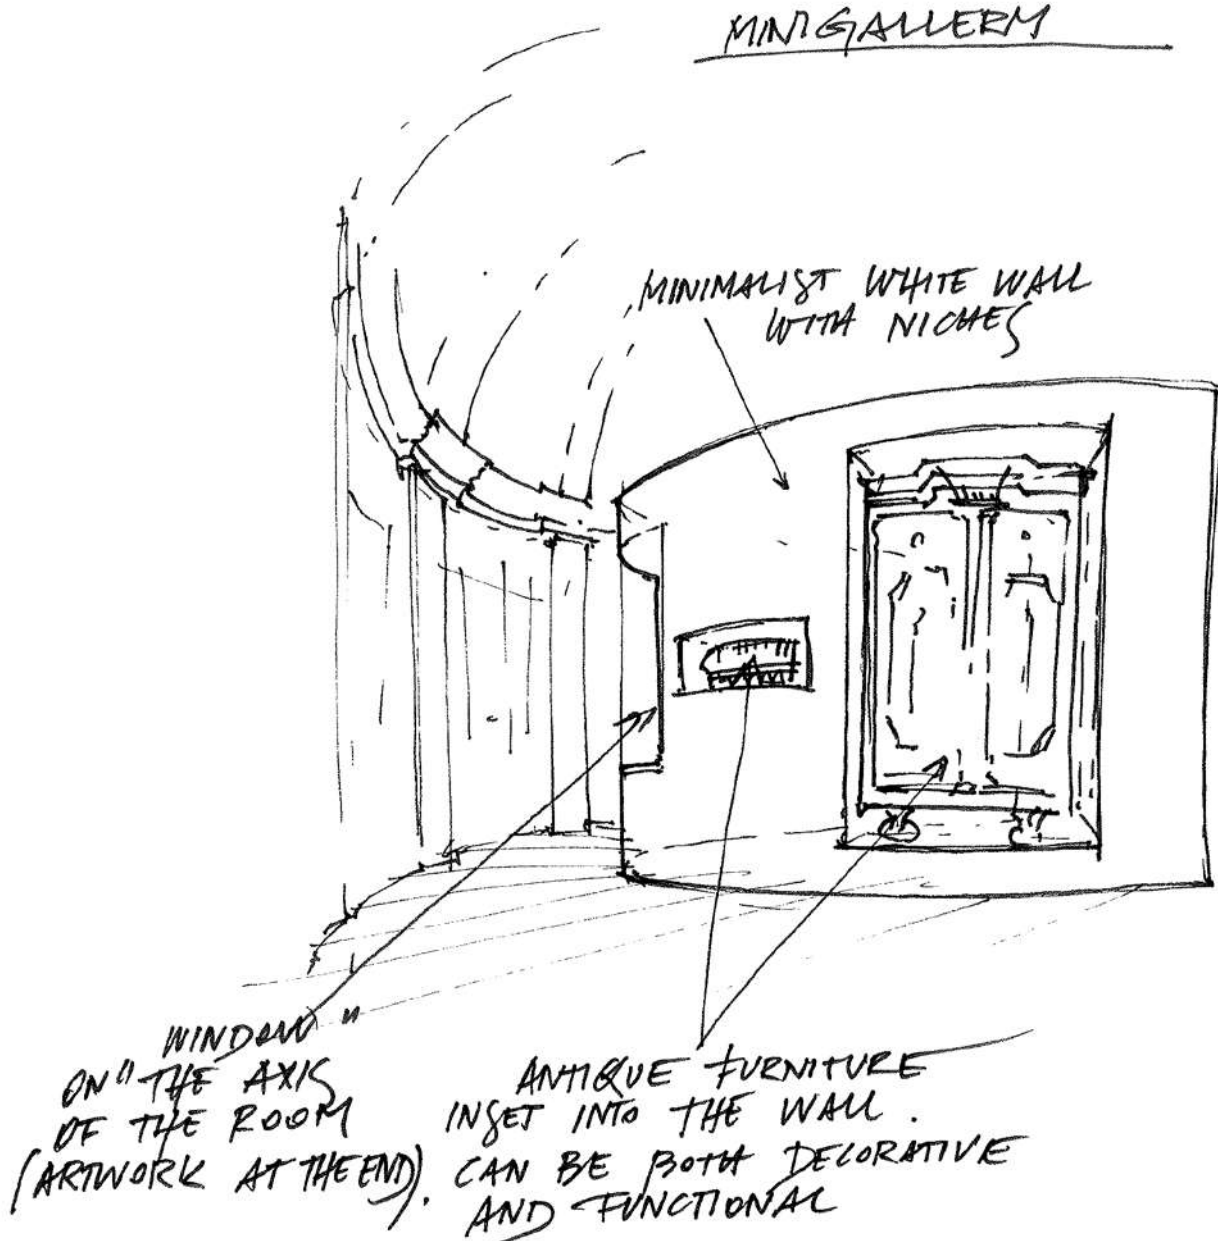 MINIGALLERY
MINIMALIST WHITE WALL
WITH NICHES
WINDOW "
ON " THE AXIS
OF THE ROOM
(ARTWORK AT THE END).
ANTIQUE FURNITURE
INSET INTO THE WALL.
CAN BE BOTH DECORATIVE
AND FUNCTIONAL